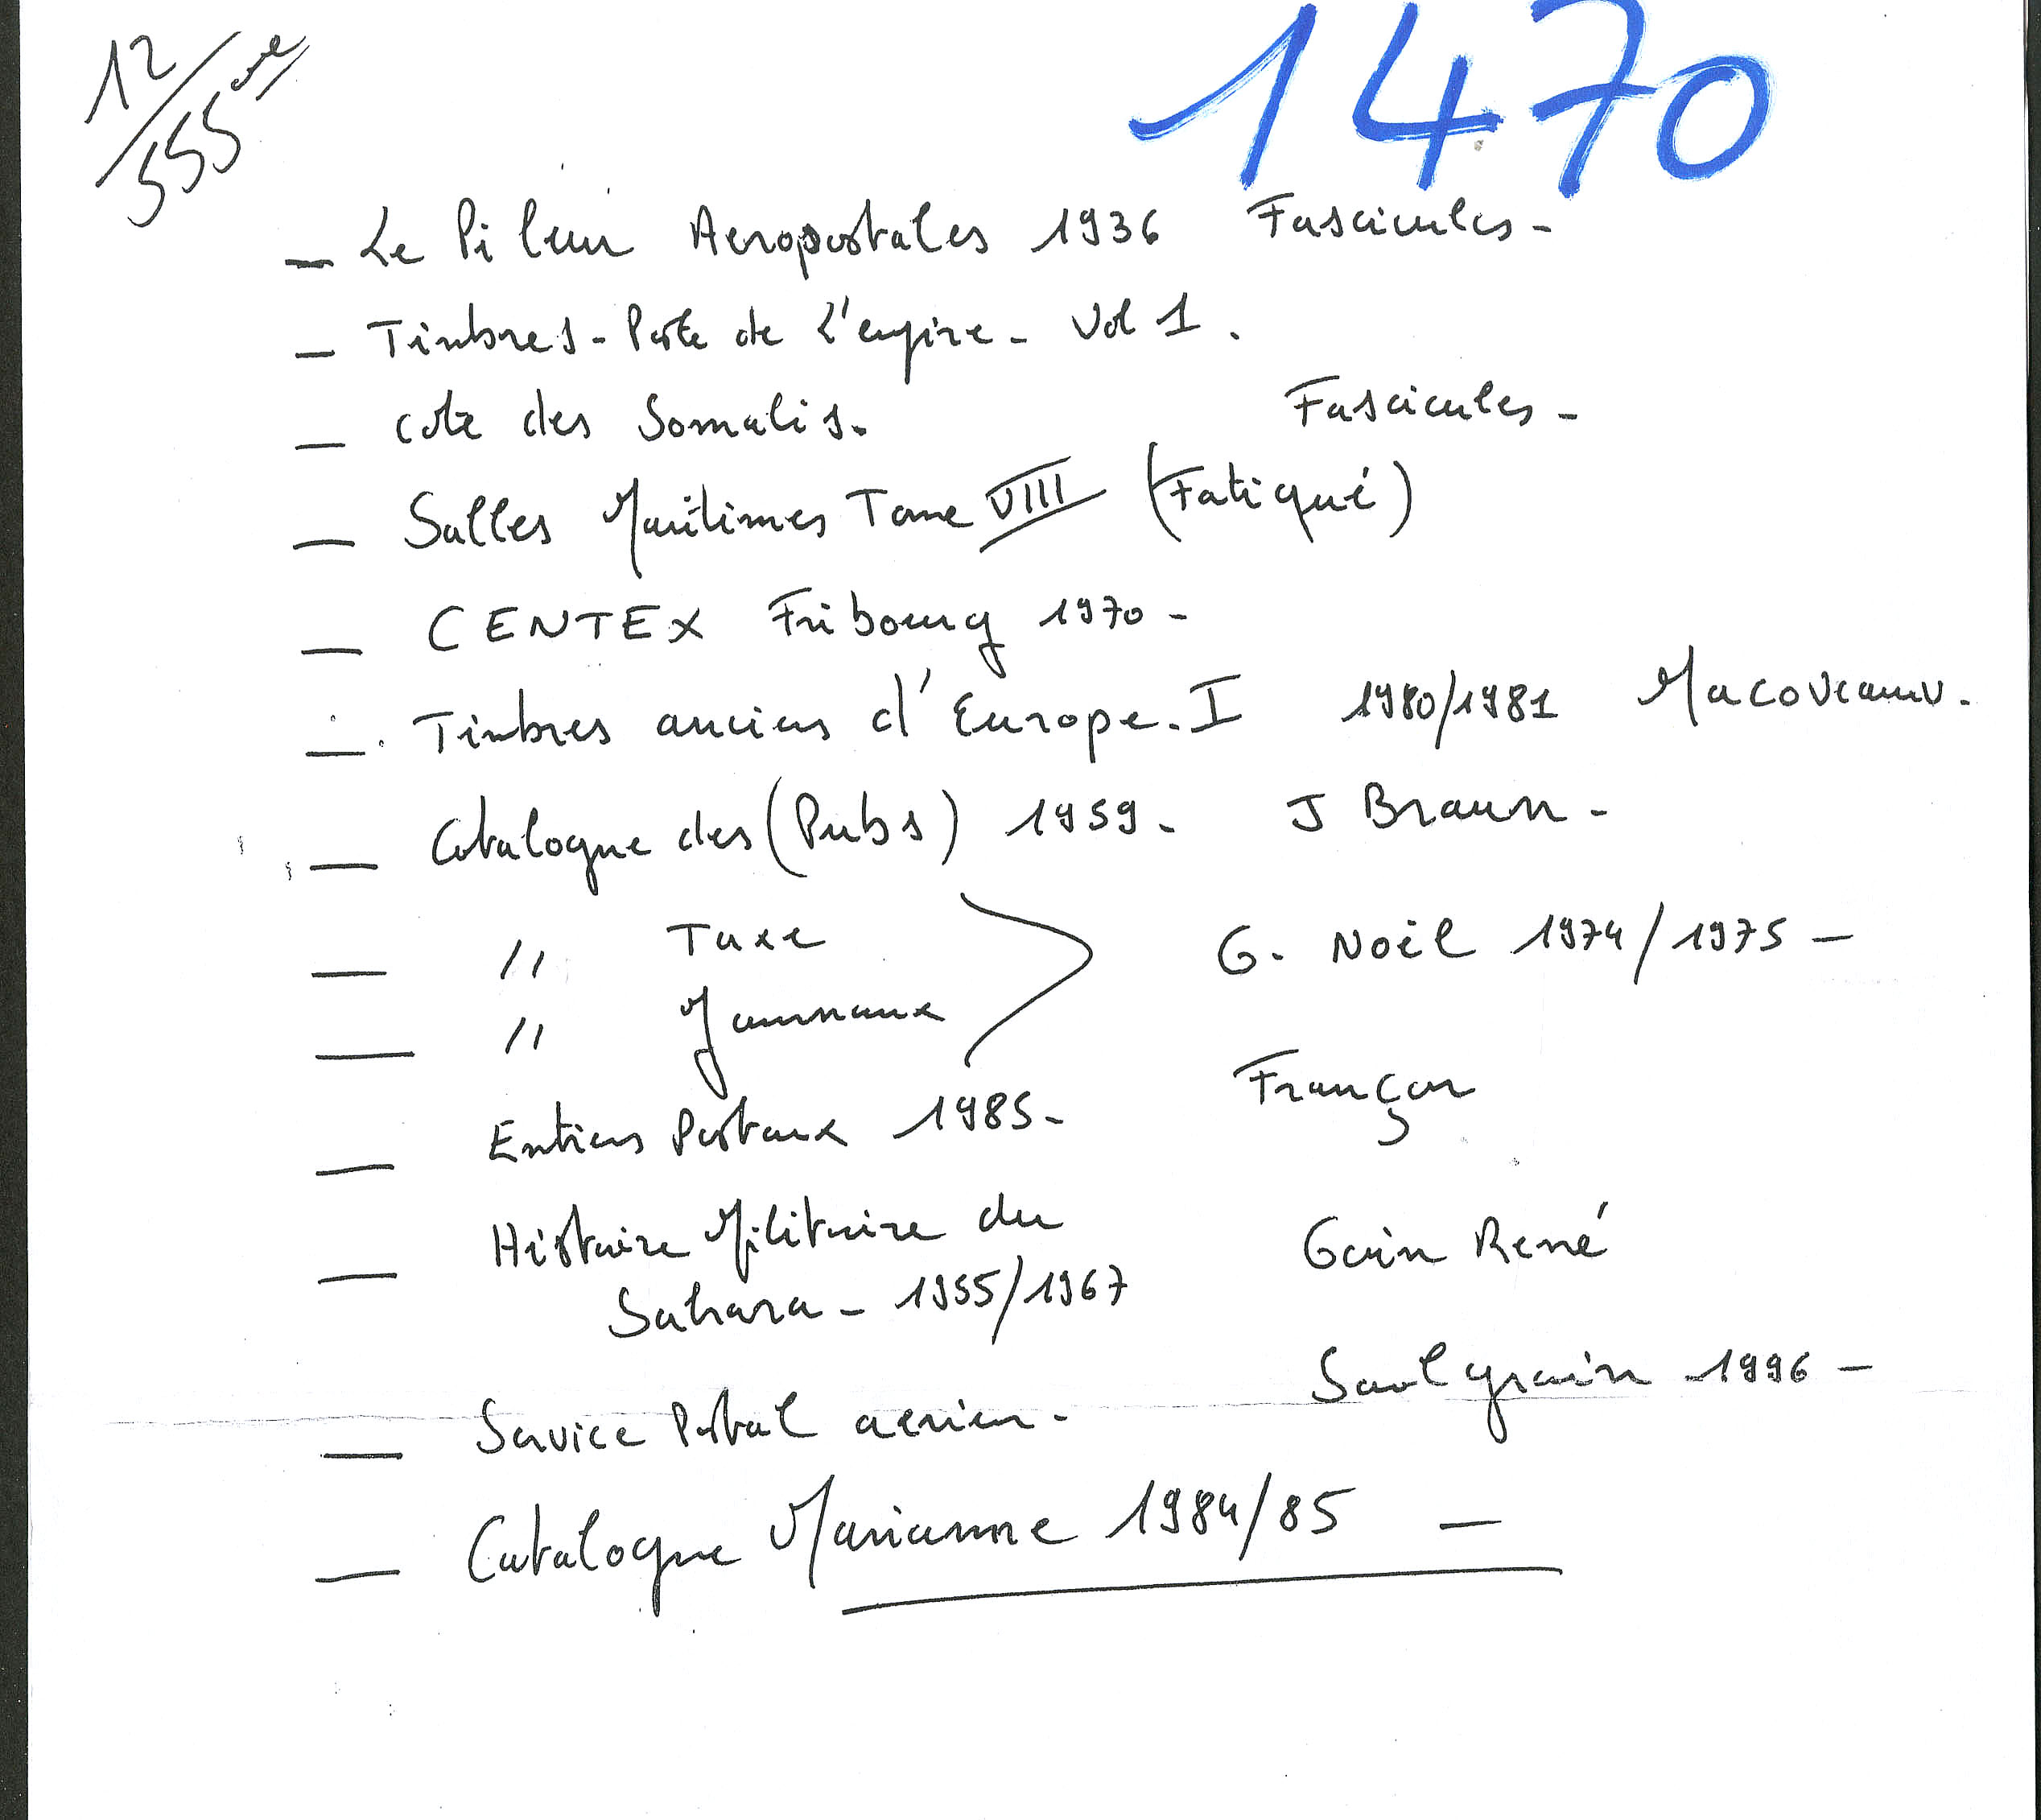 12/555
1470
— Le Pileur Aeropostales 1936 Fascicules -
— Timbres - Poste de l'empire - Vol 1.
— Cote des Somalis. Fascicules -
— Salles Maritimes Tome VIII (Fatigué)
— CENTEX Fribourg 1970 -
— Timbres anciens d'Europe. I 1980/1981
— Catalogue des (Pubs) 1959 - J Braun -
— " Taxe
G. Noël 1974/1975 —
— " Journaux
— Entiers Postaux 1985 - Françon
— Histoire Militaire du Gain René
Sahara - 1955/1967
— Service Postal aerien - Saulgrain 1996 —
— Catalogue Marianne 1984/85 —